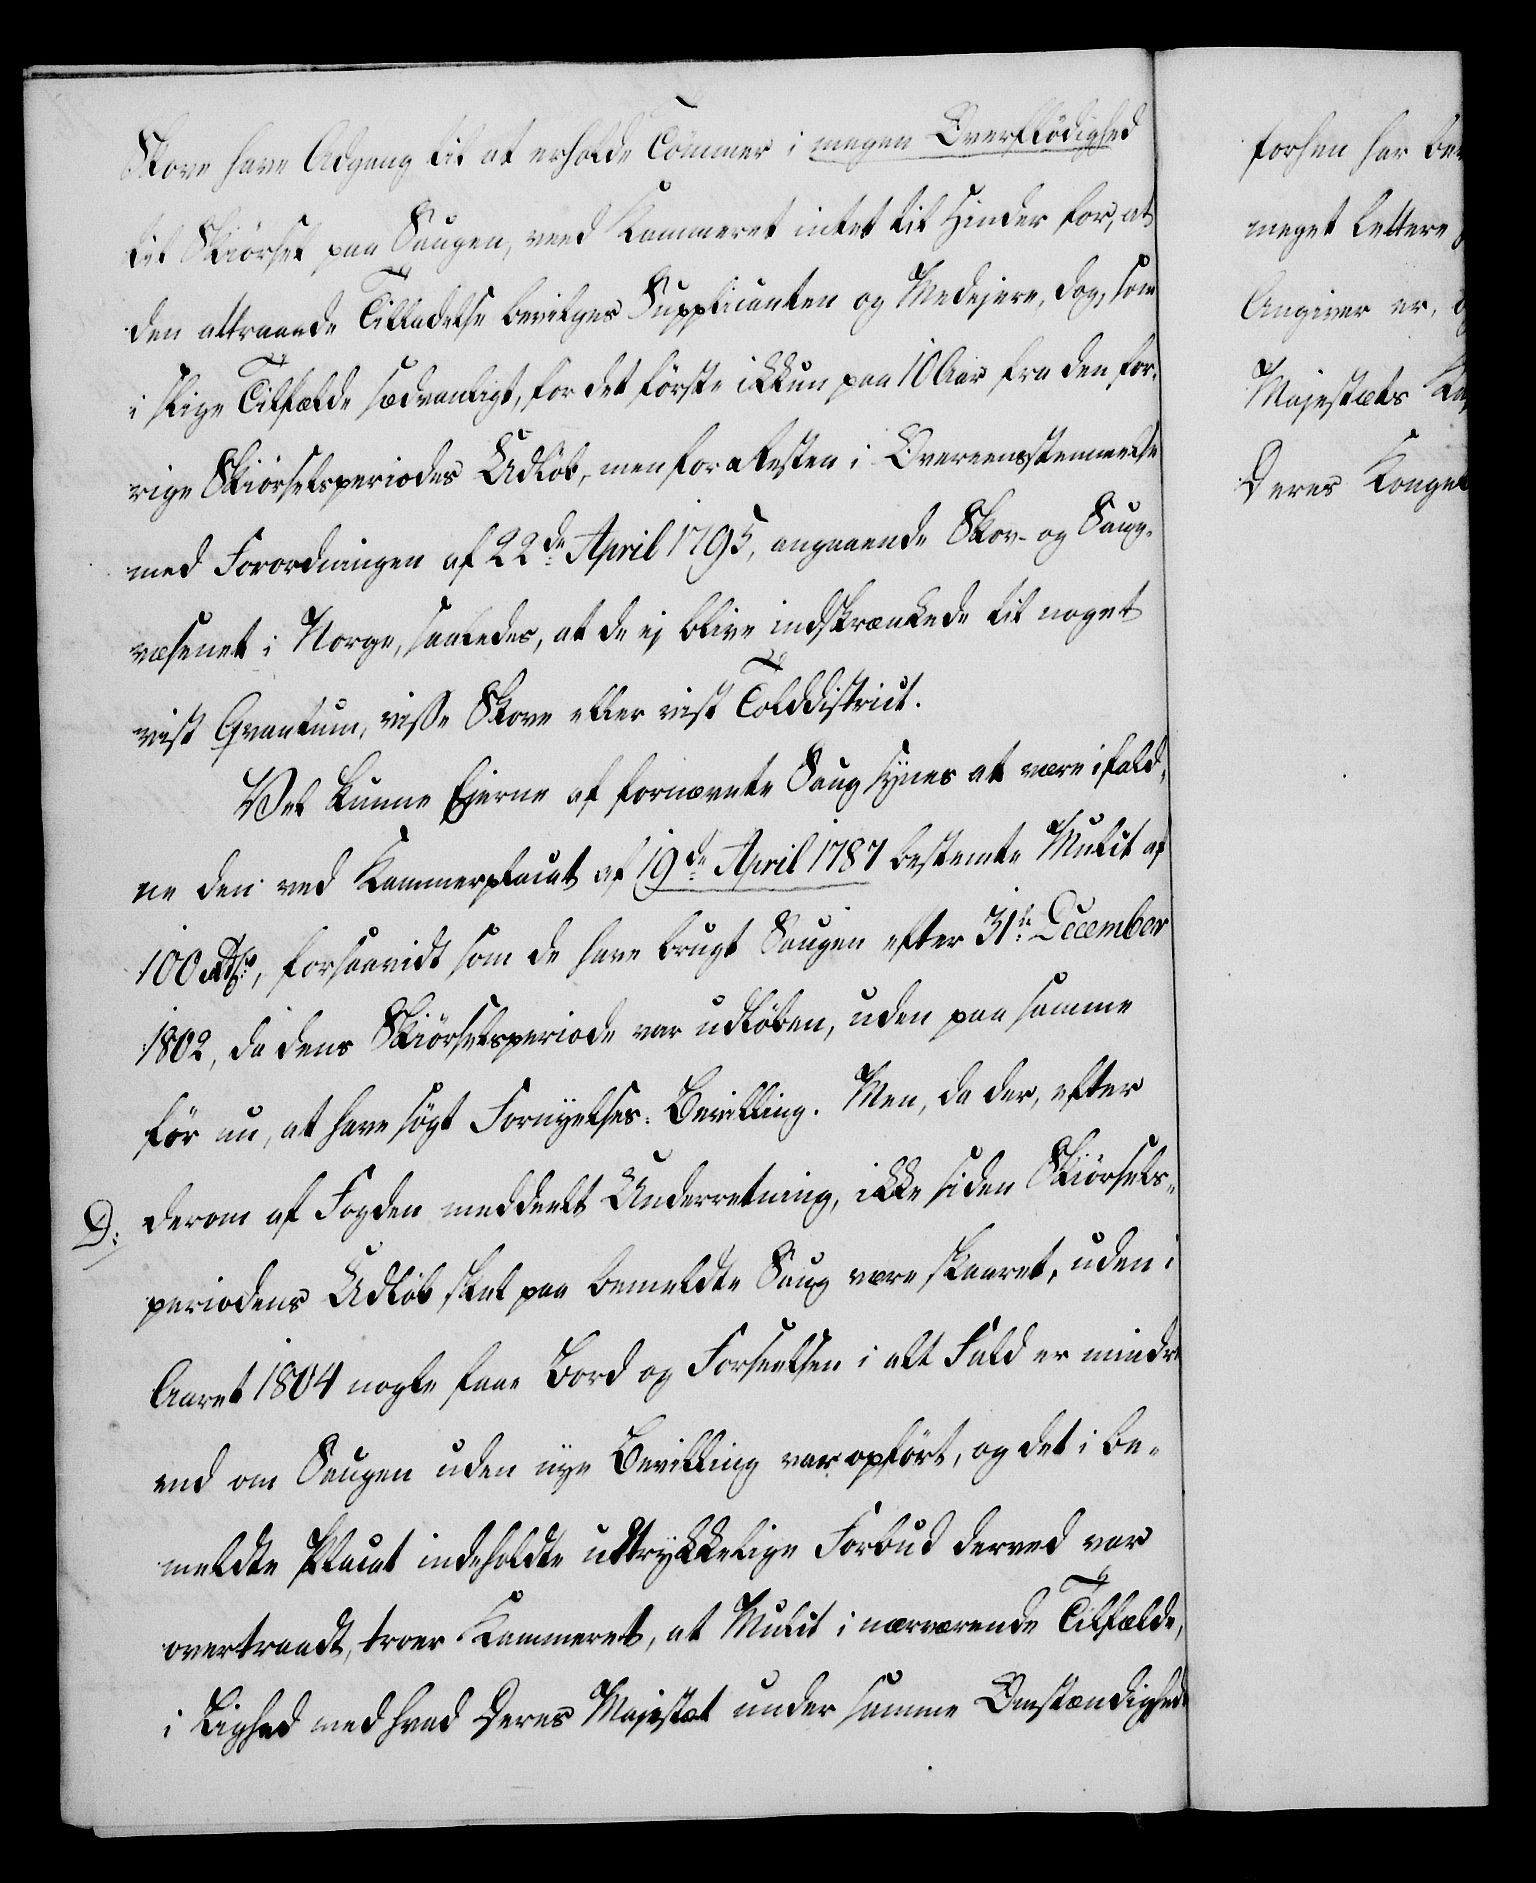 Skove have Adgang til at erholde Tømmer i megen Overflödighed
til Skiörsel paa Saugen, veed Kammeret intet til Hinder for, at
den attraaede Tilladelse bevilges Supplicanten og Medejere, dog, som
i slige Tilfælde sædvanligt, for det förste ikkun paa 10 Aar fra den for-
rige Skiörselsperiodes Udlöb, men for Resten i Overeensstemmelse
med Forordningen af 22de April 1795, angaaende Skov- og Saug-
væsenet i Norge, saaledes, at de ej blive indskrænkede til noget
vist Qvantum, visse Skove eller vist Tolddistrict.
Vel kunne Ejerne af fornævnte Saug synes at være ifald-
ne den ved Kammerplacat af 19de April 1787 bestemte Mulct af
100 Rdlr, forsaavidt som de have brugt Saugen efter 31te December
1802, da dens Skiörselsperiode var udlöben, uden paa samme
för nu, at have sögt Fornyelses-Bevilling. Men, da der, efter
D: derom af Fogden meddeelt Underretning, ikke siden Skiörsels-
periodens Udlöb skal paa bemeldte Saug være skaaret, uden i
Aaret 1804 nogle faae Bord og Forseelsen i alt Fald er mindre
end om Saugen uden nye Bevilling var opfört, og det i be-
meldte Placat indeholdte udtrykkelige Forbud derved var
overtraadt, troer Kammeret, at Mulct i nærværende Tilfælde,
i Lighed med hvad Deres Majestæt under samme Omstændighed
forhen har
meget lettere
Angiver er,
Majestæts
Deres